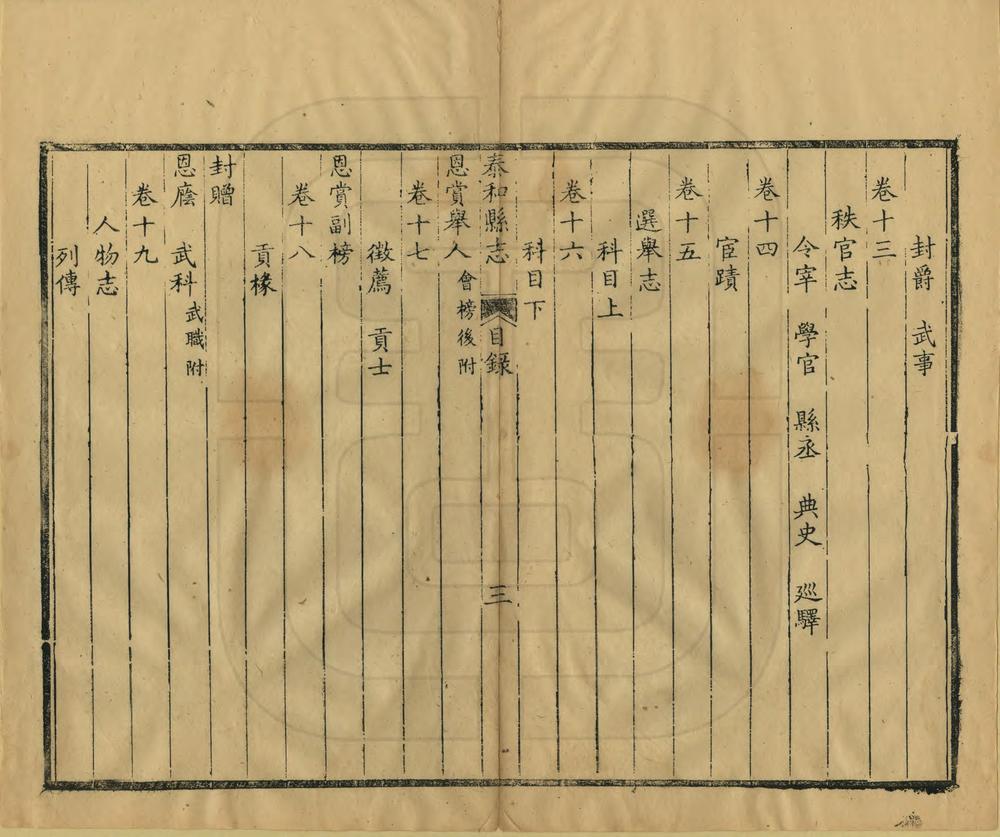 封爵　武事
卷十三
秩官志
令宰　學官　縣丞　典史　廵驛
卷十四
宦蹟
卷十五
選舉志
科目上
卷十六
科目下
泰和縣志　目錄　三
恩賞舉人會榜後附
卷十七
徵薦　貢士
恩賞副榜
卷十八
貢椽
封贈
恩廕　武科武職附
卷十九
人物志
列傳